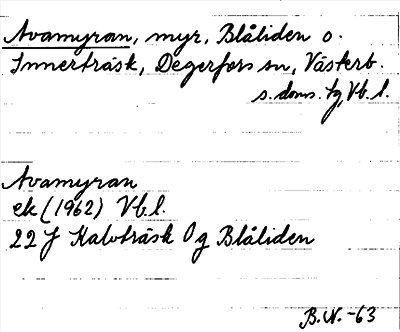 Avamyran, myr, Blåliden o.
Innerträsk, Degerfors sn, Västerb.
s. doms. tg, Vb. l.
Avamyran
ek (1962) Vb. l.
22 J Kalvträsk 0 g Blåliden
B.N. -63